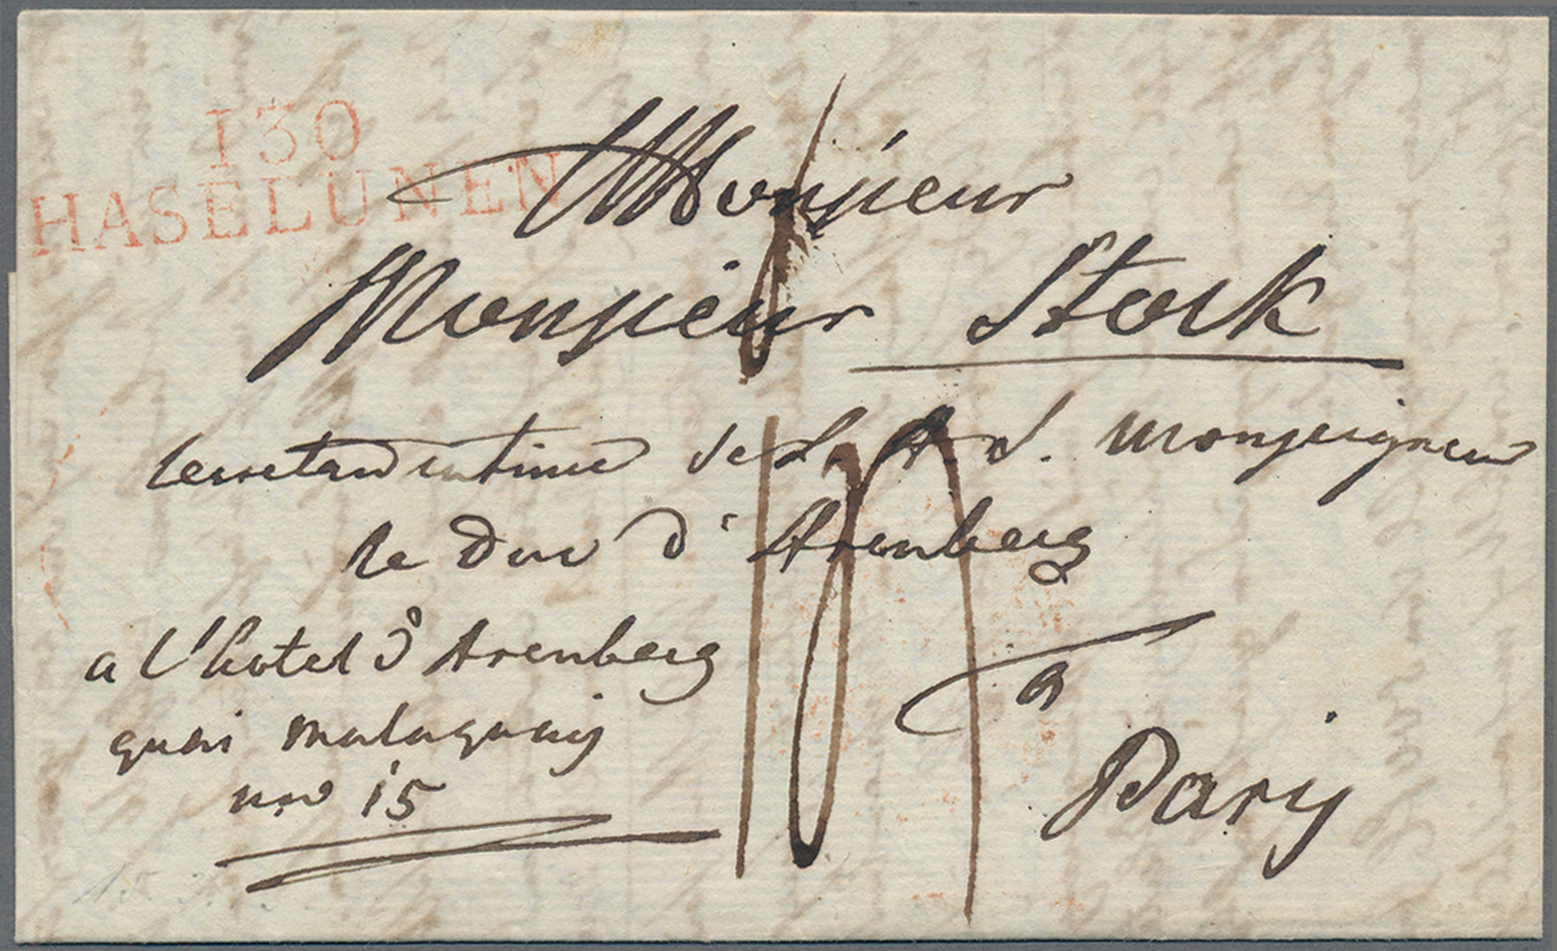 130
HASELUNEN
Monsieur
Monsieur Stock
secretaire intime de S. A. S. Monseigneur
le Duc d'Arenberg
a l'hotel d'Arenberg
quai malaquais
nro 15
a
Paris